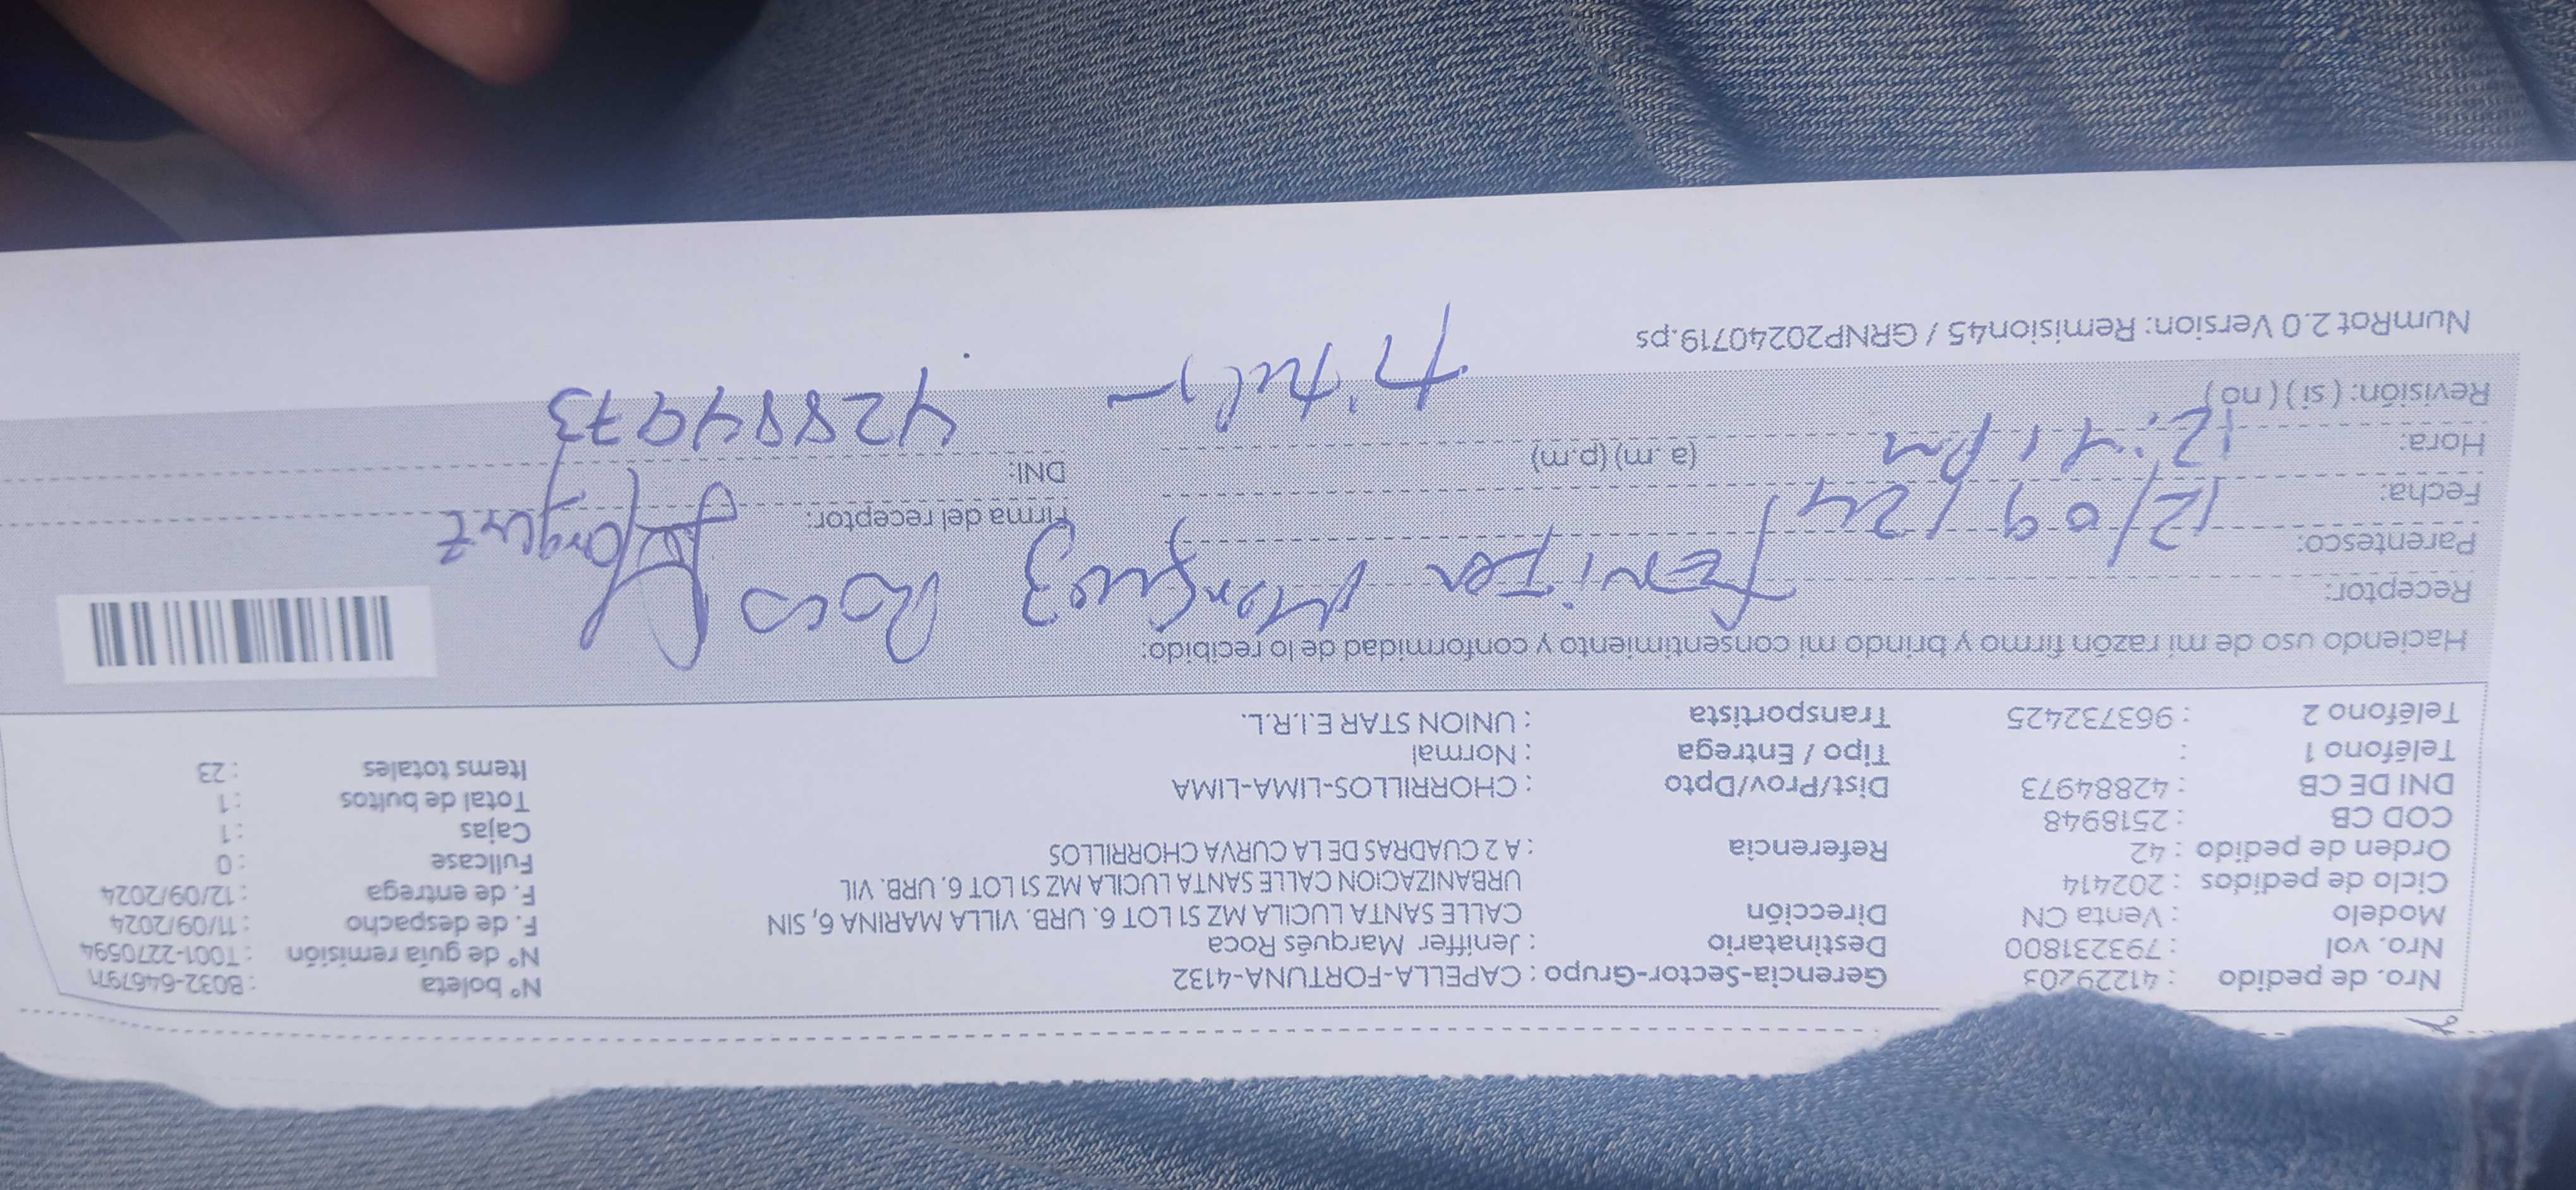 Nro. de pedido : 41229203 Gerencia-Sector-Grupo : CAPELLA-FORTUNA-4132 N° boleta : B032-6467971
Nro. vol : 793231800 Destinatario : Jeniffer Marqués Roca N° de guía remisión : T001-2270594
Modelo : Venta CN Dirección CALLE SANTA LUCILA MZ S1 LOT 6. URB. VILLA MARINA 6, SIN F. de despacho : 11/09/2024
Ciclo de pedidos : 202414 URBANIZACION CALLE SANTA LUCILA MZ S1 LOT 6. URB. VIL F. de entrega : 12/09/2024
Orden de pedido : 42 Referencia : A 2 CUADRAS DE LA CURVA CHORRILLOS Fullcase : 0
COD CB : 2518948 Cajas : 1
DNI DE CB : 42884973 Dist/Prov/Dpto : CHORRILLOS-LIMA-LIMA Total de bultos : 1
Teléfono 1 : Tipo / Entrega : Normal Items totales : 23
Teléfono 2 : 963732425 Transportista : UNION STAR E.I.R.L.
Haciendo uso de mi razón firmo y brindo mi consentimiento y conformidad de lo recibido:
Receptor: Roca
Parentesco: Firma del receptor:
Fecha: 12/09/24 DNI: 42884973
Hora: 12:41 pm (a.m) (p.m)
Revisión: (si) (no)
NumRot 2.0 Version: Remision45 / GRNP20240719.ps